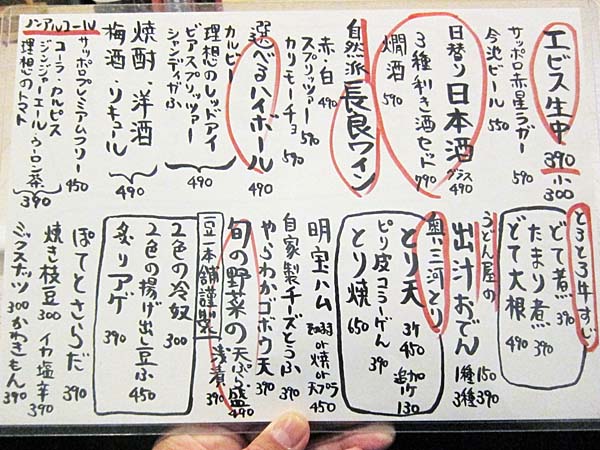 エビス生中 390 小300
サッポロ赤星ラガー 590
今池ビール 550
日替り日本酒 グラス490
3種利き酒セット 790
燗酒 590
自然派 長良ワイン
赤・白 490
スプリッツァー 590
カリモーチョ 590
選べるハイボール 490
カルピー
理想のレッドアイ
ビアスプリッツァー
シャンディガフ
490
焼酎・洋酒
梅酒・リキュール
490
ノンアルコール
サッポロプレミアムフリー 450
コーラ・カルピス
ジンジャーエール・ウーロン茶
理想のトマト
390
とろとろ牛すじ
どて煮 390
たまり煮 390
どて大根 490
うどん屋の
出汁おでん 1種150
3種390
奥三河とり
とり天 3ケ450 追加1ケ130
ピリ皮コラーゲん 390
とり焼 650
明宝ハム そのままor焼or天プラ 450
自家製チーズとうふ 390
やわらかゴボウ天 390
旬の野菜の天ぷら盛 490
浅漬 390
豆一本舗謹製
2色の冷奴 300
2色の揚げ出し豆ふ 450
炙りアゲ 390
ぽてとさらだ 390
焼き枝豆 300 イカ塩辛 390
ミックスナッツ 300 かわきもん 390